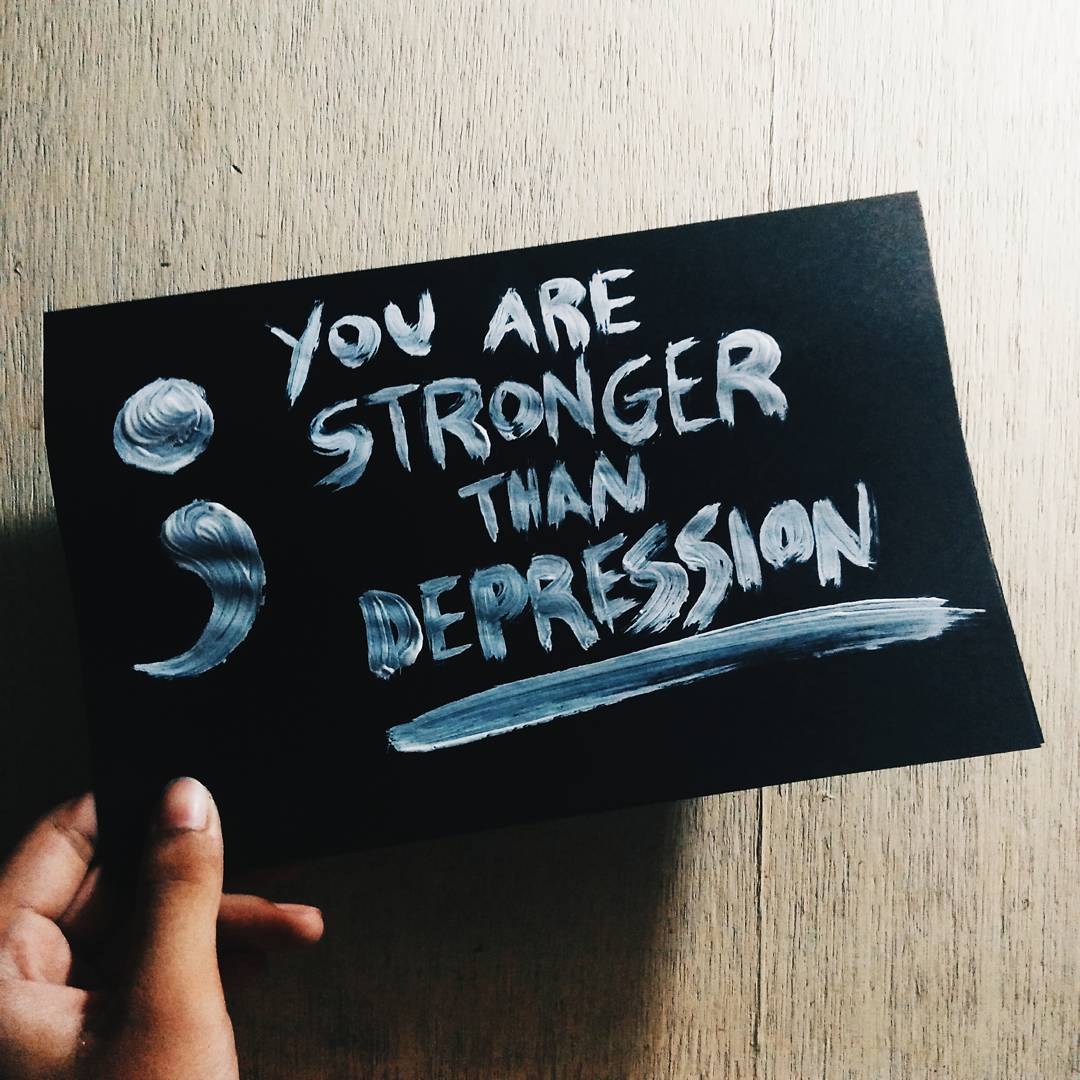 ;
YOU ARE
STRONGER
THAN
DEPRESSION